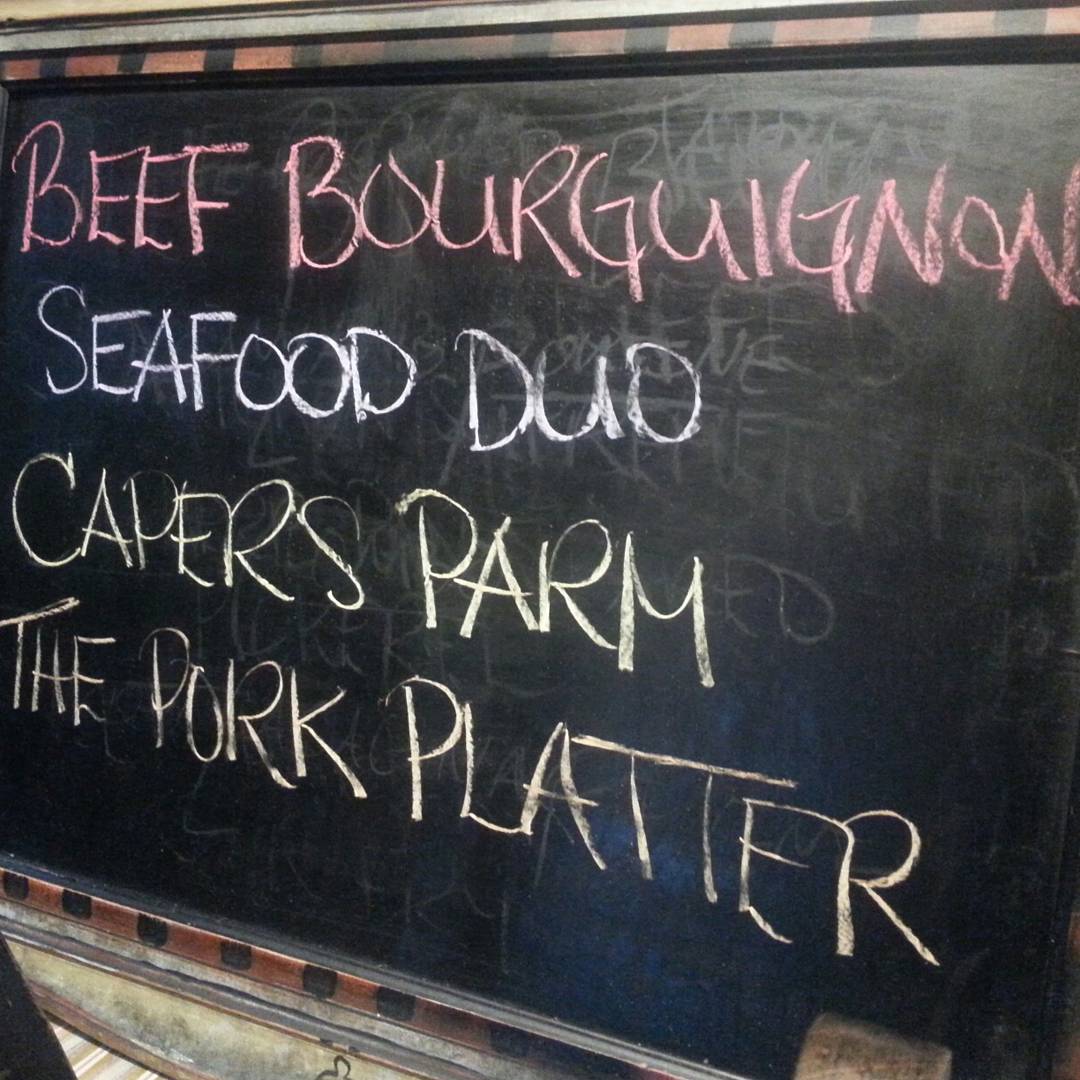 BEEF BOURGUIGNON
SEAFOOD DUO
CAPERS PARM
THE PORK PLATTER